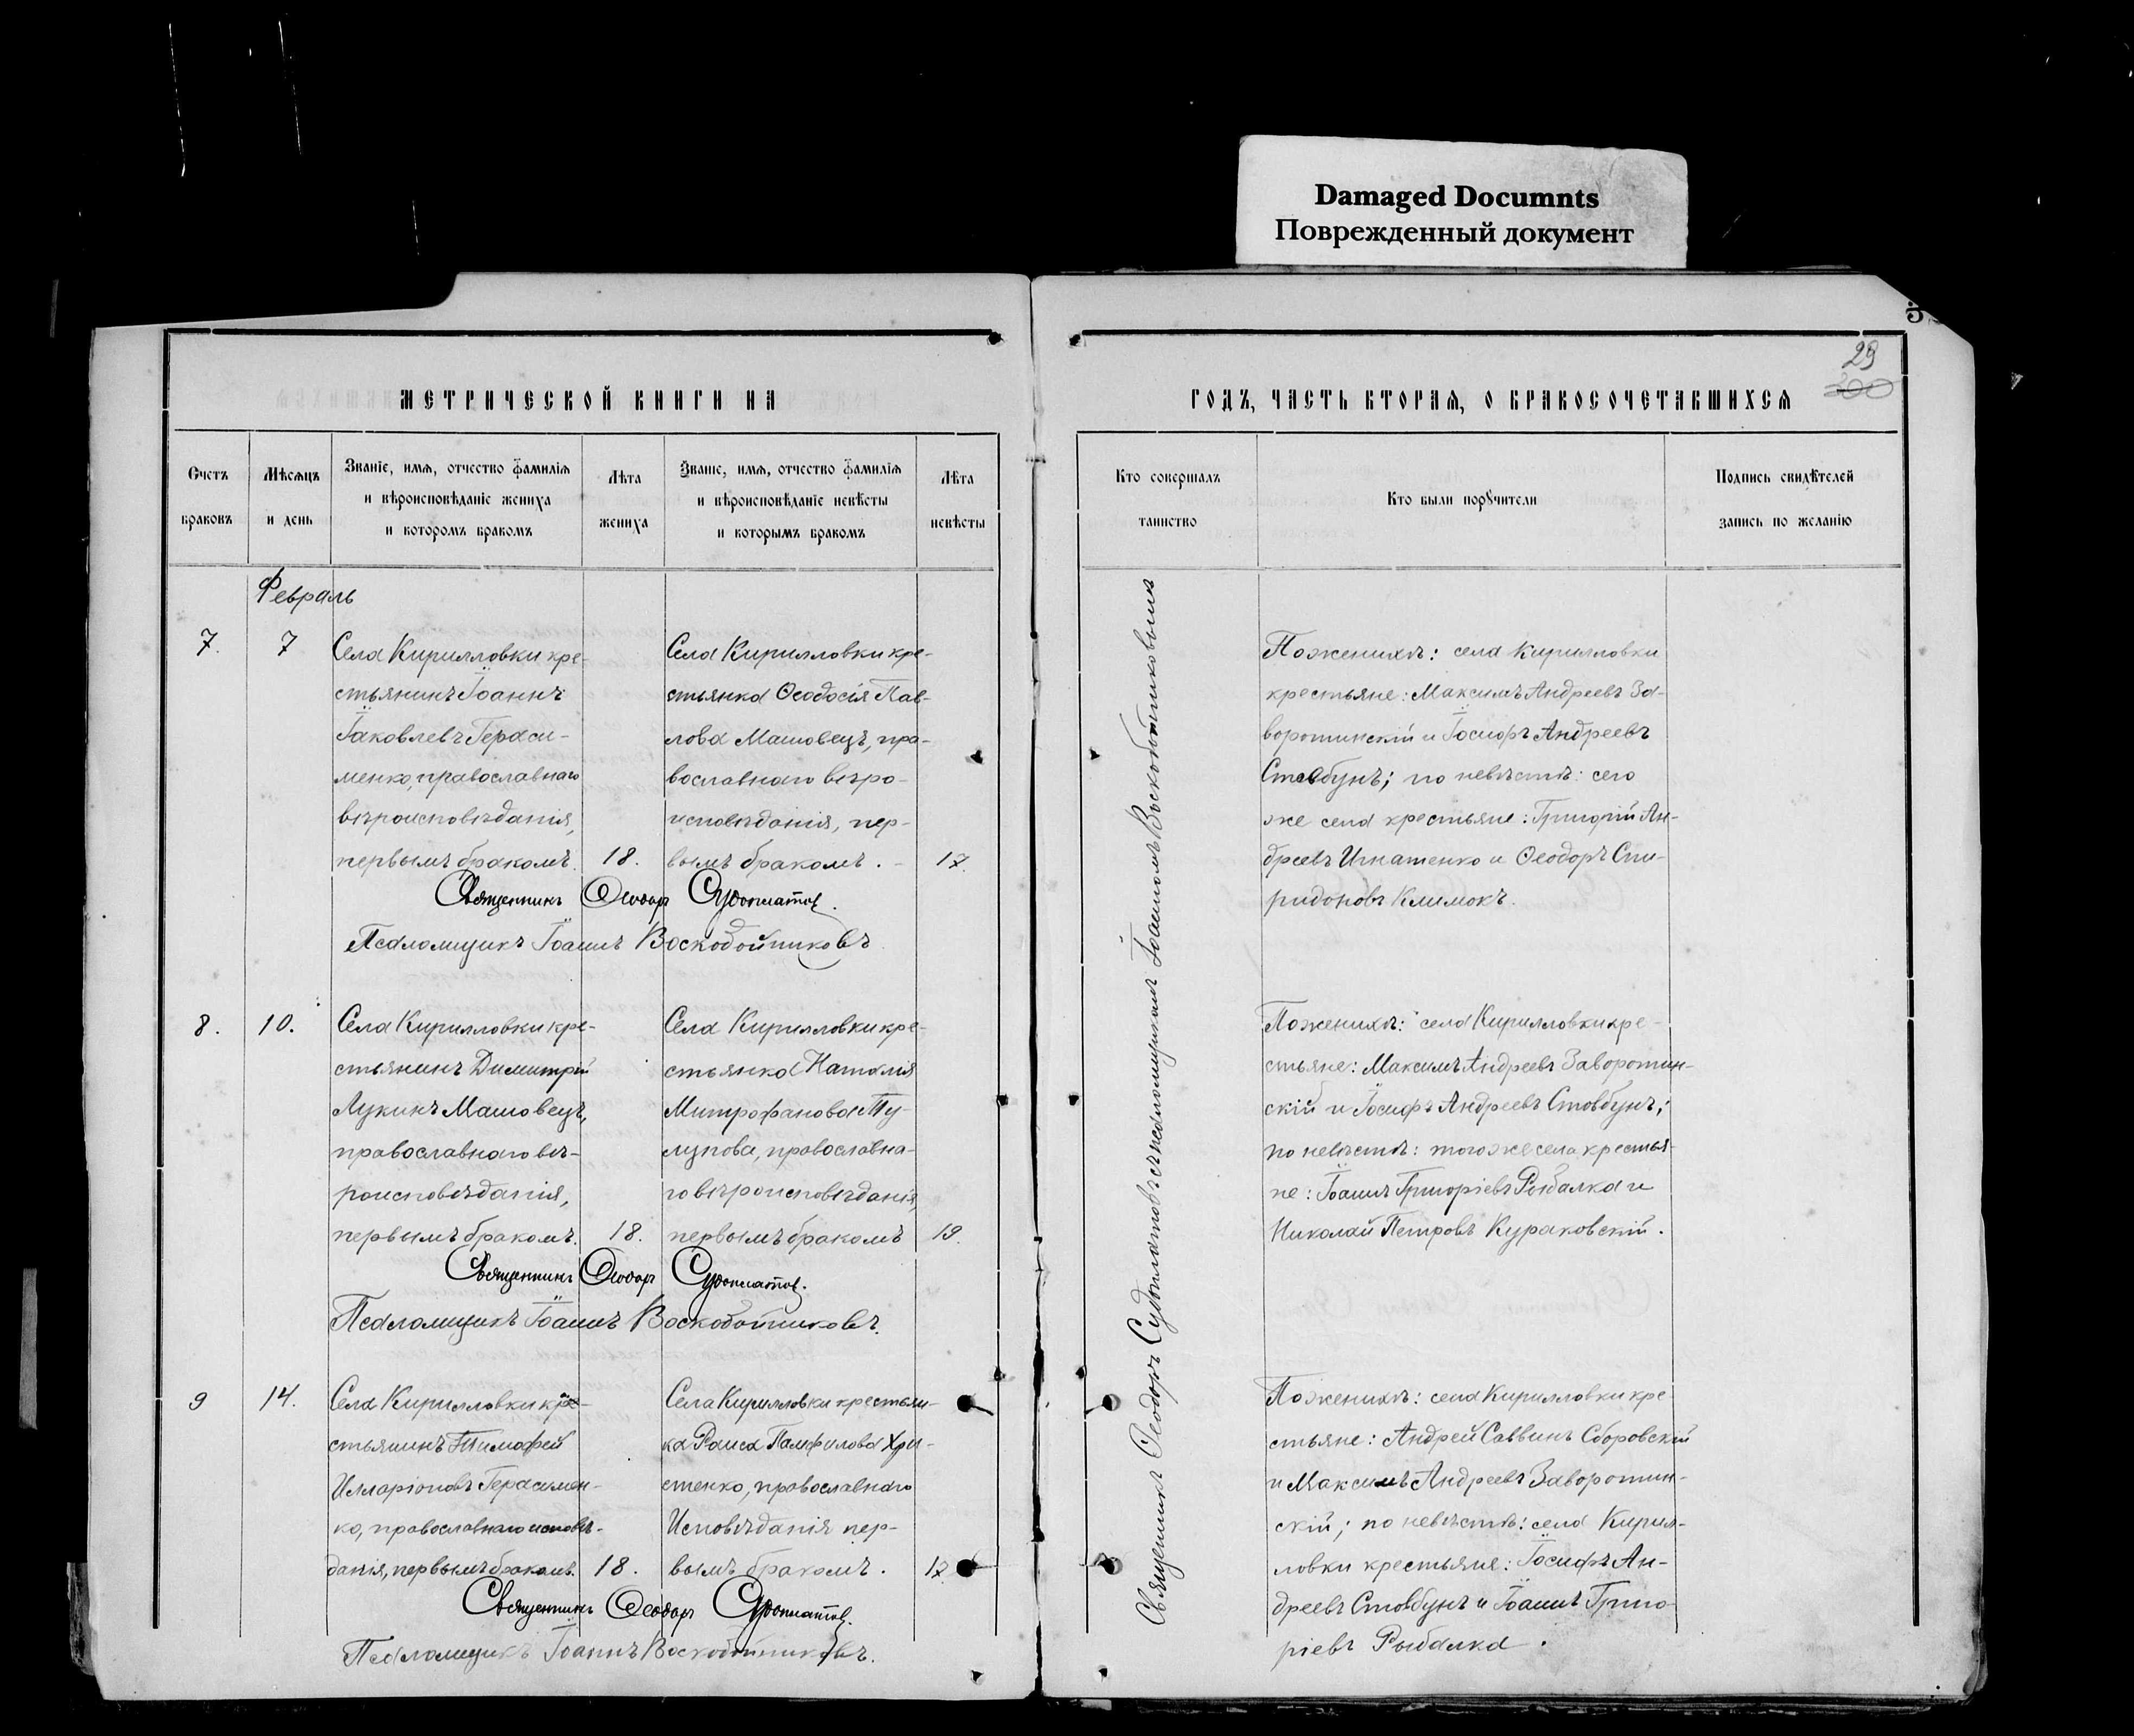 Damaged Documnts
Поврежденный документ
29
300
МЕТРИЧЕСКОЙ КНИГИ НА
Счетъ
браковъ
Мѣсяцъ
и день
Званіе, имя, отчество фамилія
и вѣроисповѣданіе жениха
и которомъ бракомъ
Лѣта
жениха
Званіе, имя, отчество фамилія
и вѣроисповѣданіе невѣсты
и которымъ бракомъ
Лѣта
невѣсты
Февраль
7.
7
Села Кирилловки кре-
стьянинъ Іоаннъ
Іаковлевъ Гераси-
менко, православнаго
вѣроисповѣданія,
первымъ бракомъ.
18.
Села Кирилловки кре-
стьянка Ѳеодосія Пав-
лова Машовецъ, пра-
вославнаго вѣро-
исповѣданія, пер-
вымъ бракомъ.
17.
Священникъ Ѳеодоръ Судоплатов.
Псаломщикъ Іоаннъ Воскобойниковъ
8.
10.
Села Кирилловки кре-
стьянинъ Димитрій
Лукинъ Машовецъ,
православнаго вѣ-
роисповѣданія,
первымъ бракомъ.
18.
Села Кирилловки кре-
стьянка Наталія
Митрофанова Ту-
лупова, православна-
го вѣроисповѣданія,
первымъ бракомъ
19.
Священникъ Ѳеодоръ Судоплатов.
Псаломщикъ Іоаннъ Воскобойниковъ.
9
14.
Села Кирилловки кре-
стьянинъ Тимофей
Илларіоновъ Герасимен-
ко, православнаго исповѣ-
данія, первымъ бракомъ.
18.
Села Кирилловки крестьян-
ка Раиса Памфилова Хри-
стенко, православнаго
Исповѣданія пер-
вымъ бракомъ.
17.
Священникъ Ѳеодоръ Судоплатов.
Псаломщикъ Іоаннъ Воскобойниковъ.
ГОДЪ, ЧАСТЬ ВТОРАЯ, О БРАКОСОЧЕТАВШИХСЯ
Кто совершалъ
таинство
Кто были порꙋчители
Подпись свидѣтелей
запись по желанію
Священникъ Ѳеодоръ Судоплатовъ съ псаломщикомъ Іоанномъ Воскобойниковымъ
По женихѣ: села Кирилловки
крестьяне: Максимъ Андреевъ За-
воротинскій и Іосифъ Андреевъ
Стовбунъ; по невѣстѣ: сего
же села крестьяне: Григорій Ан-
дреевъ Игнатенко и Ѳеодоръ Спи-
ридоновъ Климокъ.
По женихѣ: села Кирилловки кре-
стьяне: Максимъ Андреевъ Заворотин-
скій и Іосифъ Андреевъ Стовбунъ;
по невѣстѣ: того же села крестья-
не: Іоаннъ Григоріевъ Рыбалка и
Николай Петровъ Кураковскій.
По женихѣ: села Кирилловки кре-
стьяне: Андрей Саввинъ Сборовскій
и Максимъ Андреевъ Заворотин-
скій; по невѣстѣ: села Кирил-
ловки крестьяне: Іосифъ Ан-
дреевъ Стовбунъ и Іоаннъ Григо-
ріевъ Рыбалка.